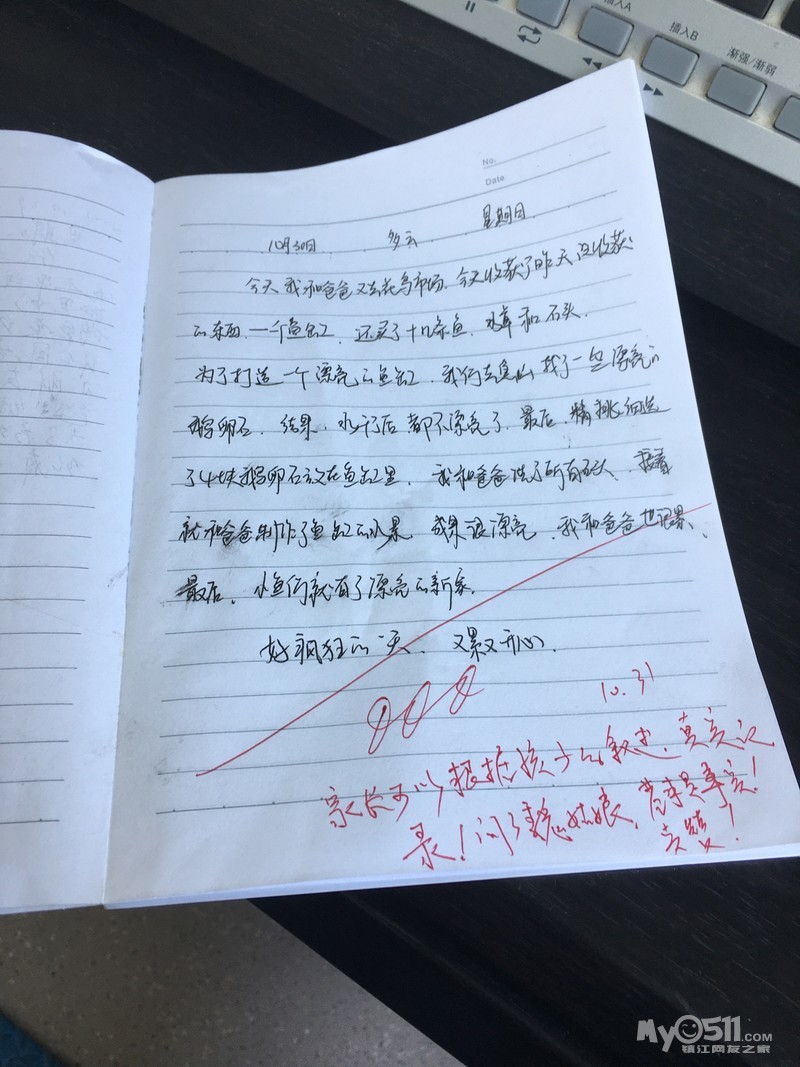 插入A
插入B
渐强/渐弱
No.
Date
10月30日 多云 星期日
今天我和爸爸又去花鸟市场,今天收获了昨天没收获
的东西,一个鱼缸,还买了十几条鱼,水草和石头。
为了打造一个漂亮的鱼缸,我们去 找了一些漂亮的
鹅卵石,结果,水干后都不漂亮了,最后,精挑细选
了4块鹅卵石放在鱼缸里,我和爸爸洗了所有石头,接着
就和爸爸制作了鱼缸的水果,成果很漂亮,我和爸爸也很累、
最后,小鱼们就有了漂亮的新家。
好疯狂的一天,又累又开心。
10.31
家长可以根据孩子的叙述,真实记
录!问了 姑娘, 事是事实!
点赞!
My0511.COM
镇江网友之家